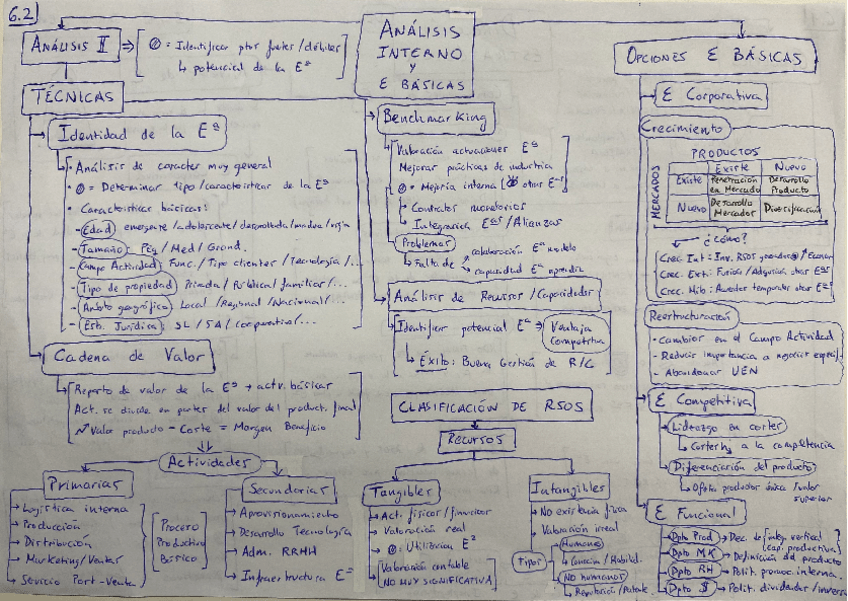 6.2)
ANÁLISIS INTERNO
Y
E BÁSICAS
ANÁLISIS I
= Identificar ptos fuertes/débiles
potencial de la Eª
TÉCNICAS
Identidad de la Eª
Análisis de caracter muy general
= Determinar tipo/características de la Eª
Características básicas:
- Edad emergente/adolescente/desarrollada/madura/vieja
- Tamaño: Peq/Med/Grand.
- Campo Actividad: Func./Tipo clientes/Tecnología/...
- Tipo de propiedad: Privada/Pública/familiar/...
- Ámbito geográfico: Local/Regional/Nacional/...
- Est. Jurídica: SL/SA/cooperativa/...
Cadena de Valor
Reparto de valor de la Eª → actv. básicas
Act. se divide en partes del valor del product. final
Valor producto - Coste = Margen Beneficio
Actividades
Primarias
Logística interna
Producción
Distribución
Marketing/Ventas
Servicio Post-Venta
Proceso
Productivo
Básico
Secundarias
Aprovisionamiento
Desarrollo Tecnología
Adm. RRHH
Infraestructura Eª
Benchmarking
Valoración actuaciones Eª
Mejorar prácticas de industria
= Mejoría interna otras Eªs
Contratos monetarios
Integración Eªs/Alianzas
Problemas
Falta de
colaboración Eª modelo
capacidad Eª aprendiz
Análisis de Recursos/Capacidades
Identificar potencial Eª ⇒ Ventaja
Competitiva
Éxito: Buena Gestión de R/C
CLASIFICACIÓN DE RSOS
RECURSOS
Tangibles
Act. físicos/financieros
Valoración real
: Utilización Eª
Valoración contable
NO MUY SIGNIFICATIVA
Intangibles
No existencia física
Valoración irreal
Tipos
Humanos
Conocim/Habilid.
No humanos
Reputación/Patente
OPCIONES E BÁSICAS
E Corporativa
Crecimiento
PRODUCTOS
MERCADOS
Existe Nuevo
Existe Penetración en Mercado Desarrollo Producto
Nuevo Desarrollo Mercados Diversificación
¿Cómo?
Crec. Int: Inv. RSOS generados
Crec. Ext: Fusión/Adquisic. otras Eªs
Crec. Híb: Acuerdos temporales otras Eªs
Reestructuración
- cambios en el Campo Actividad
- Reducir importancia a negocios específ.
- Abandonar UEN
E Competitiva
Liderazgo en costes
Costes a la competencia
Diferenciación del producto
Ofrta productos única
superior
E Funcional
Dpto Prod → Dec. de integ. vertical
(cap. productiva)
Dpto MK → Definición del producto
Dpto RH → Polít. promoc. interna.
Dpto $ → Polít. dividendos/inversión